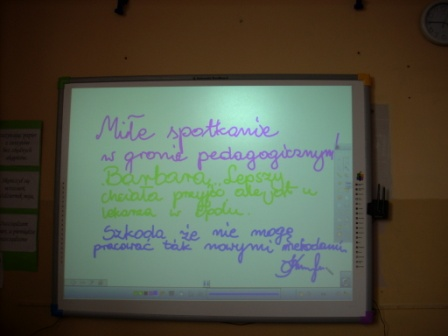 Miłe spotkanie
w gronie pedagogicznym!
Barbara Lepszy
chciała przyjść ale jest u
lekarza w Opolu.
Szkoda że nie mogę
pracować tak nowymi metodami